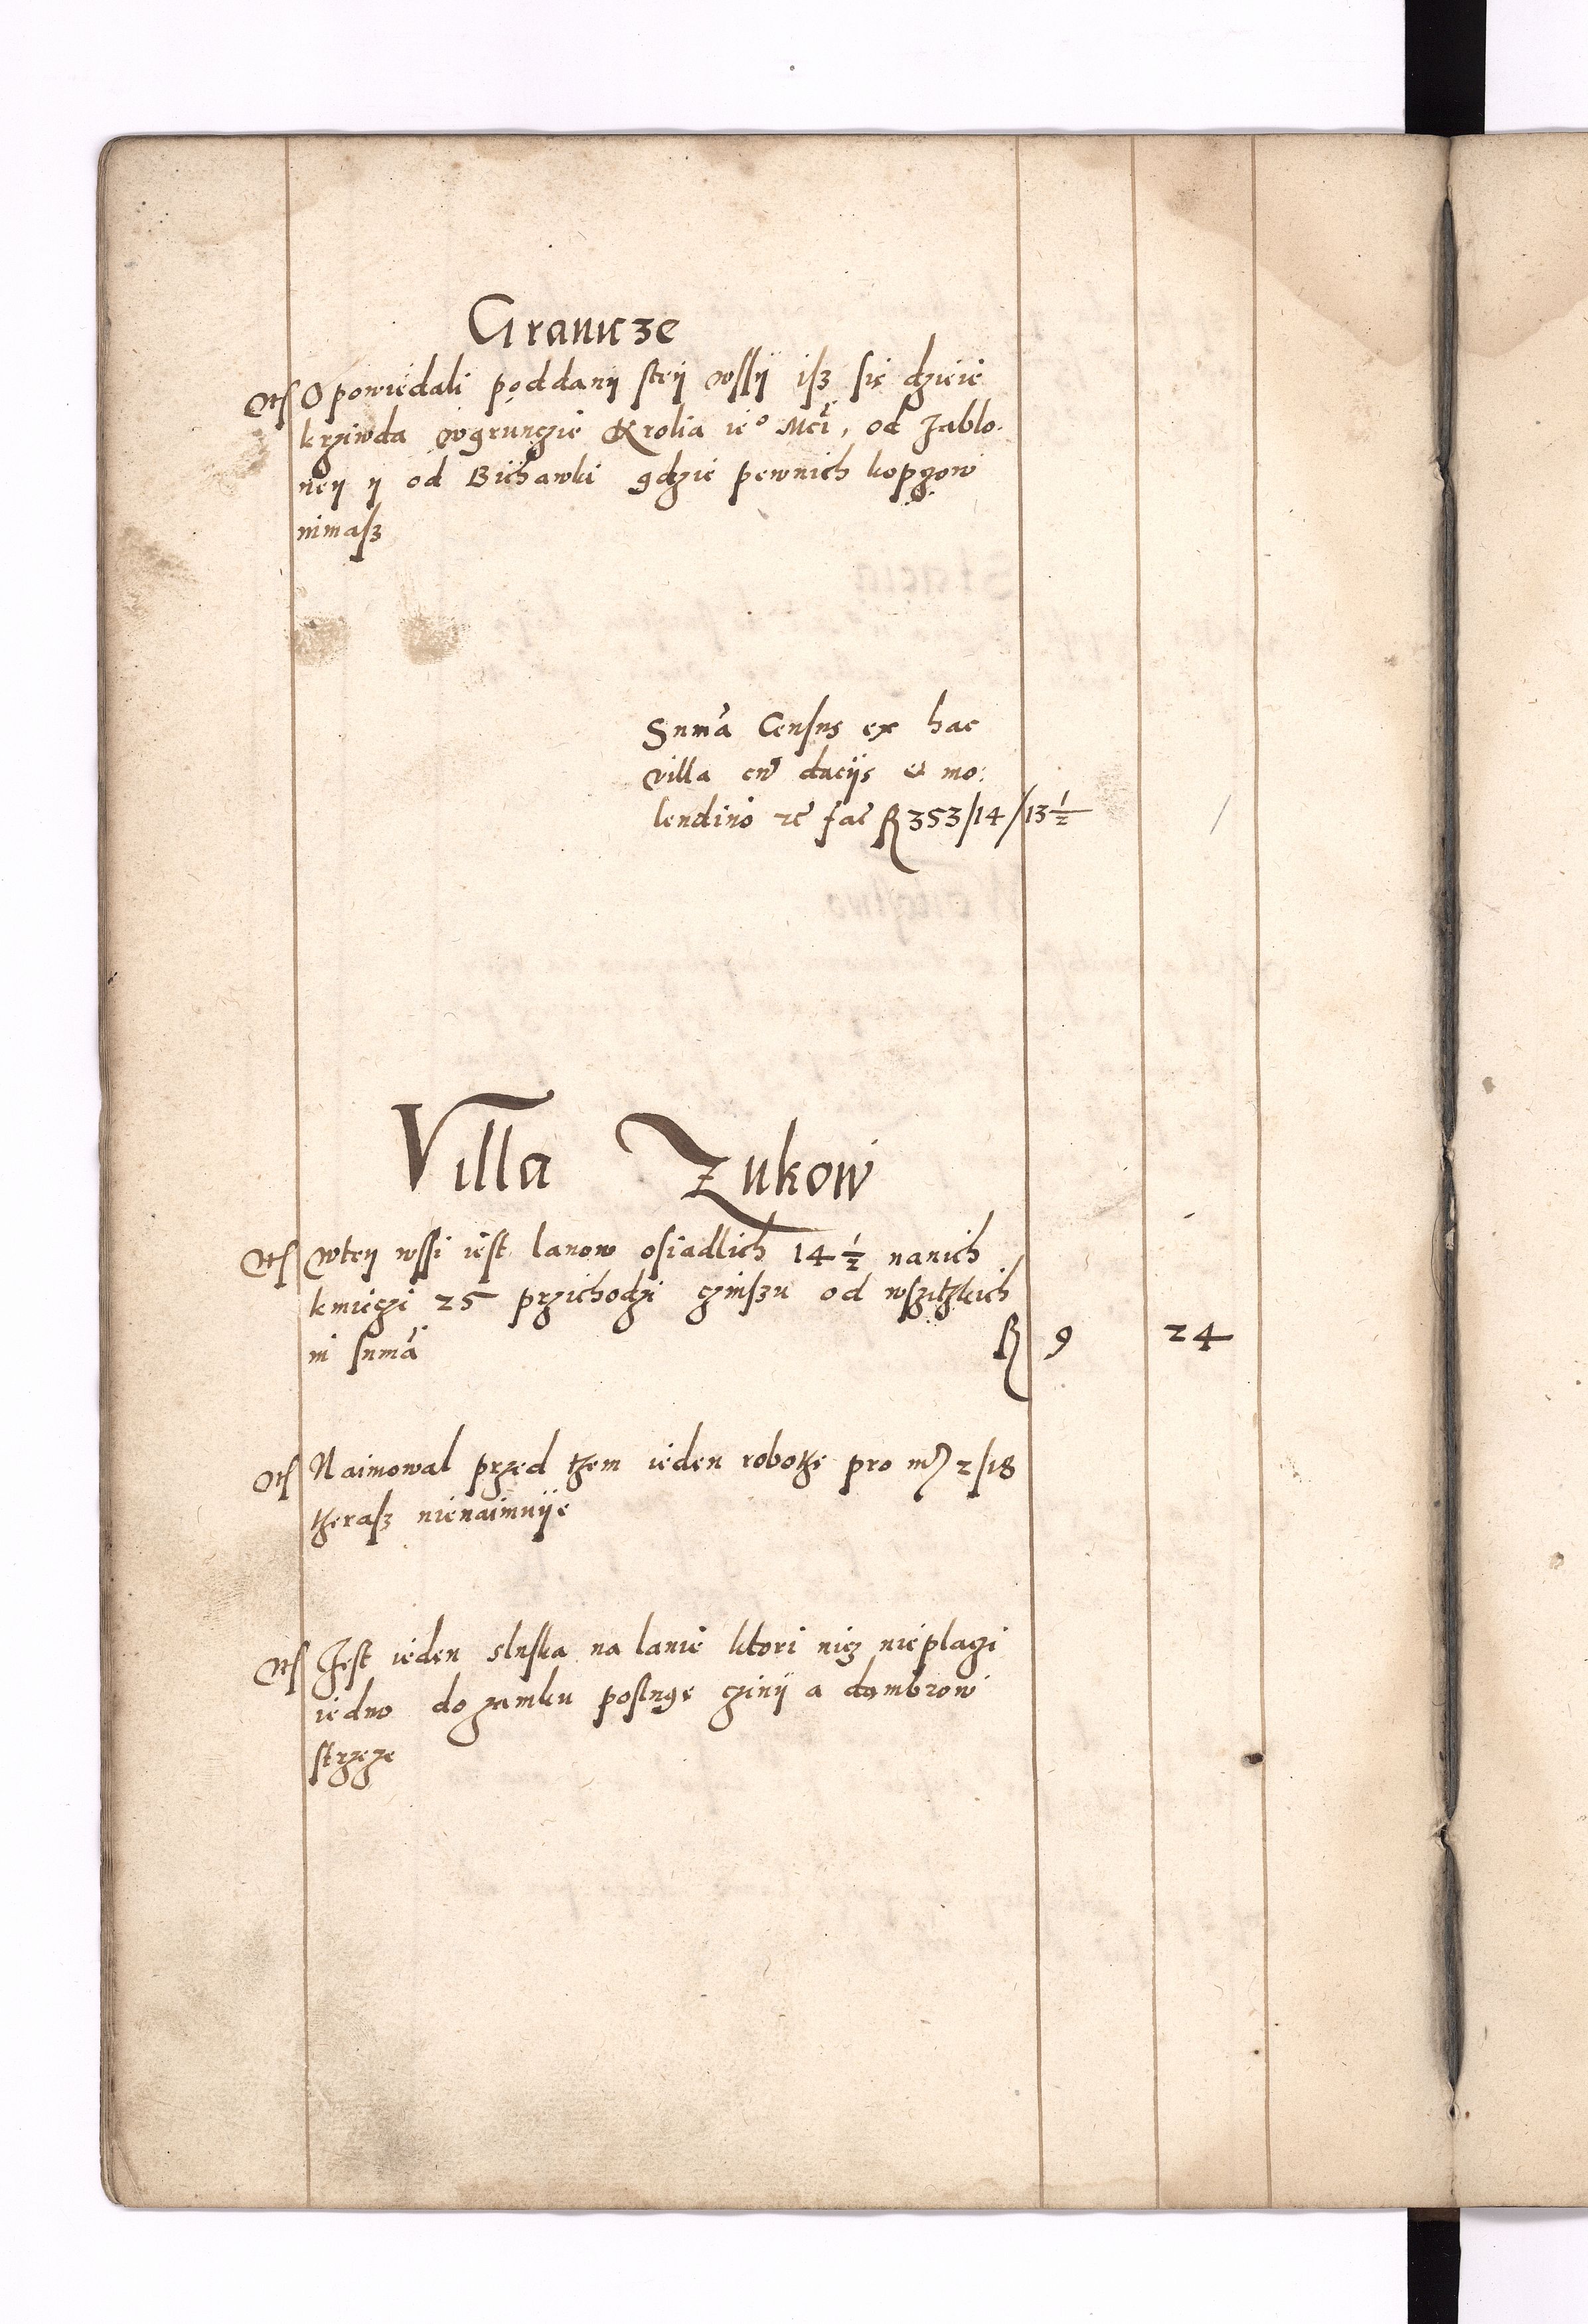 Granicze
Opowiedali poddanij stey wssij isz się dzieie
krziwda wgrunczie Krolia ie° Mći, od Jablo.
ney y od Bichawki gdzie pewnich kopczow
nimasz
Suma Census ex hac
villa cum daciis et mo:
lendino etc fac 353/14/13½
Villa Zukow
wtey wssi iest lanow osiadlich 14½ nanich
kmieczi 25 przichodzi czinszu od wszitzkich
in suma 9 24
Naimowal przed tzem ieden robotze pro mr 2/18
tzerasz nienaimuije
Jest ieden sluska na lanie ktori nicz nieplaczi
iedno do zamku poslugę czinij a dambrow
strzeze